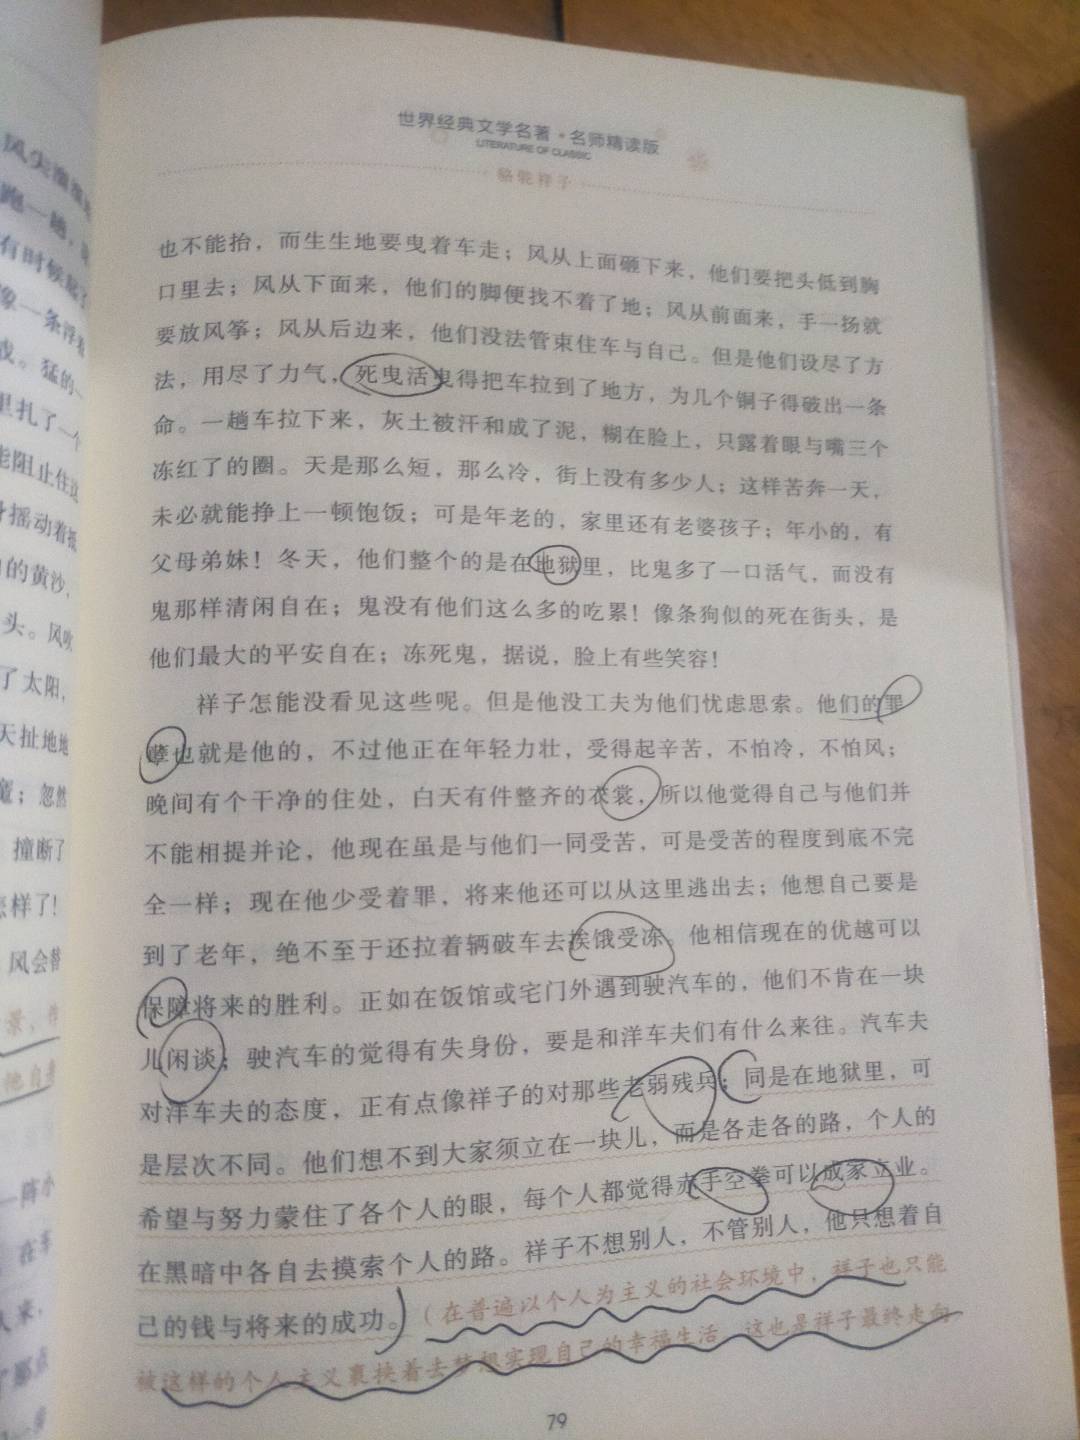 世界经典文学名著·名师精读版
LITERATURE OF CLASSIC
骆驼祥子
也不能抬，而生生地要曳着车走；风从上面砸下来，他们要把头低到胸
口里去；风从下面来，他们的脚便找不着了地；风从前面来，手一扬就
要放风筝；风从后边来，他们没法管束住车与自己。但是他们设尽了方
法，用尽了力气，死曳活曳得把车拉到了地方，为几个铜子得破出一条
命。一趟车拉下来，灰土被汗和成了泥，糊在脸上，只露着眼与嘴三个
冻红了的圈。天是那么短，那么冷，街上没有多少人；这样苦奔一天，
未必就能挣上一顿饱饭；可是年老的，家里还有老婆孩子；年小的，有
父母弟妹！冬天，他们整个的是在地狱里，比鬼多了一口活气，而没有
鬼那样清闲自在；鬼没有他们这么多的吃累！像条狗似的死在街头，是
他们最大的平安自在；冻死鬼，据说，脸上有些笑容！
祥子怎能没看见这些呢。但是他没工夫为他们忧虑思索。他们的罪
孽也就是他的，不过他正在年轻力壮，受得起辛苦，不怕冷，不怕风；
晚间有个干净的住处，白天有件整齐的衣裳，所以他觉得自己与他们并
不能相提并论，他现在虽是与他们一同受苦，可是受苦的程度到底不完
全一样；现在他少受着罪，将来他还可以从这里逃出去；他想自己要是
到了老年，绝不至于还拉着辆破车去挨饿受冻。他相信现在的优越可以
保障将来的胜利。正如在饭馆或宅门外遇到驶汽车的，他们不肯在一块
儿闲谈；驶汽车的觉得有失身份，要是和洋车夫们有什么来往。汽车夫
对洋车夫的态度，正有点像祥子的对那些老弱残兵；同是在地狱里，可
是层次不同。他们想不到大家须立在一块儿，而是各走各的路，个人的
希望与努力蒙住了各个人的眼，每个人都觉得赤手空拳可以成家立业。
在黑暗中各自去摸索个人的路。祥子不想别人，不管别人，他只想着自
己的钱与将来的成功。（在普遍以个人为主义的社会环境中，祥子也只能
被这样的个人主义裹挟着去梦想实现自己的幸福生活，这也是祥子最终走向
79